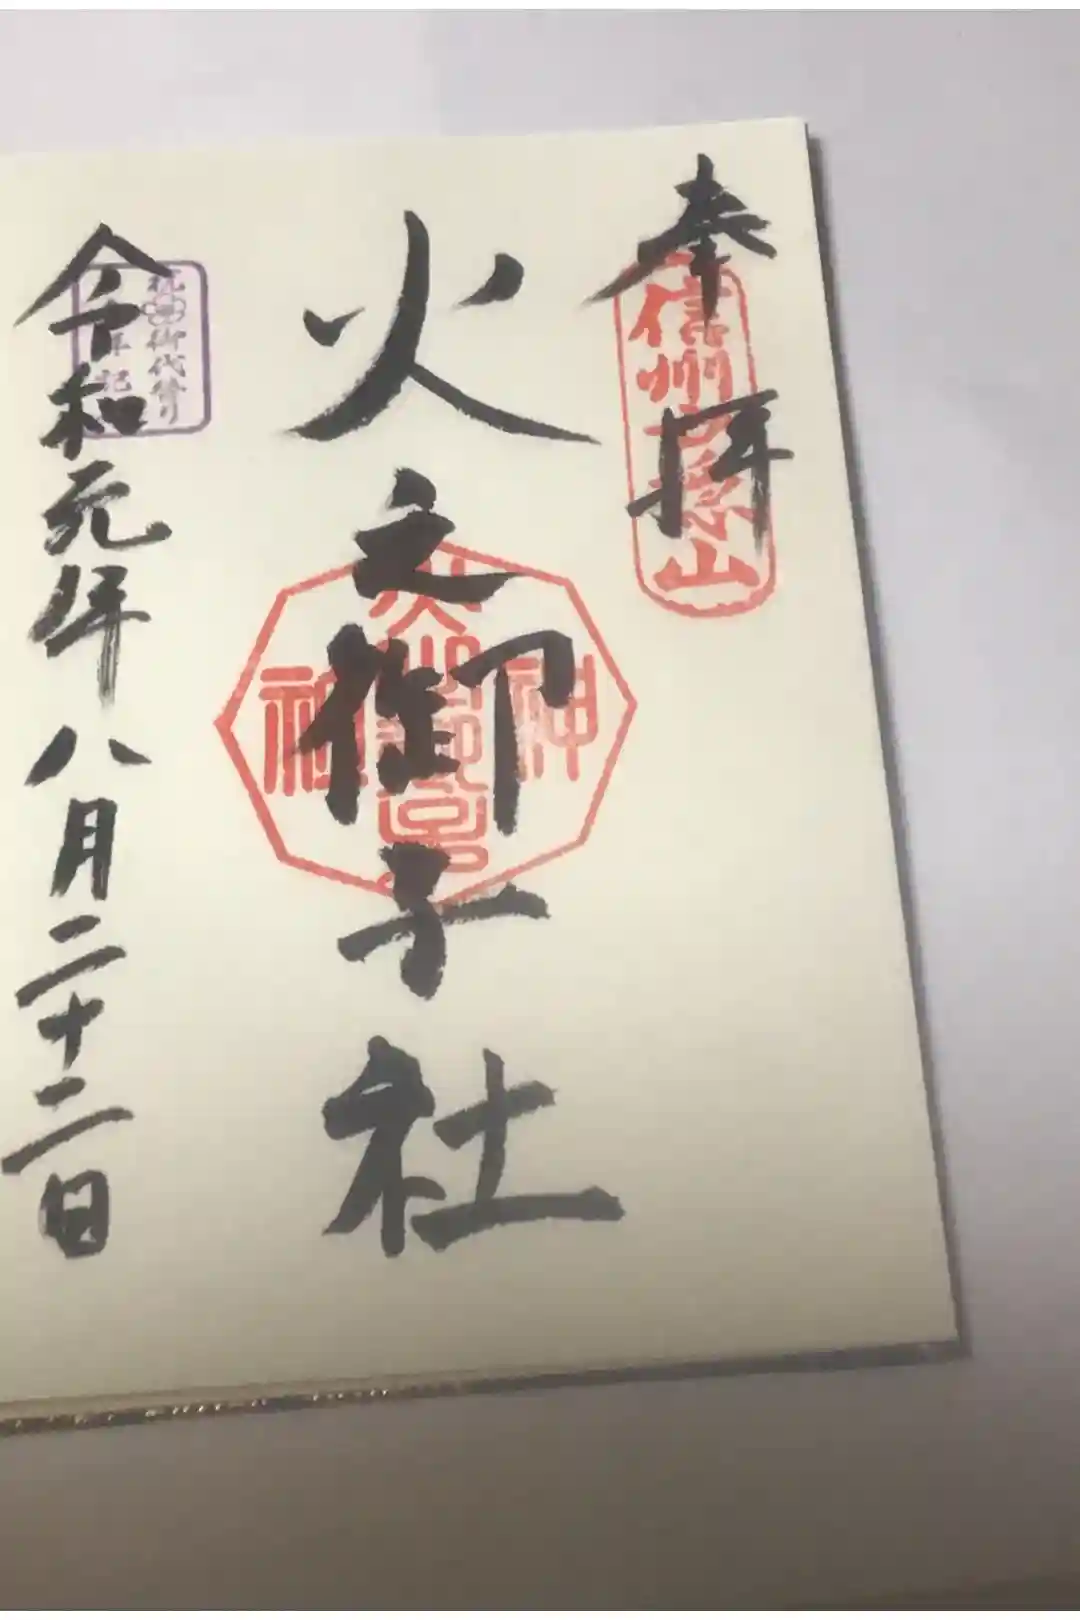 奉拝
信州戸隠山
火之御子社
令和元年八月二十二日
祝 御代替り
年記